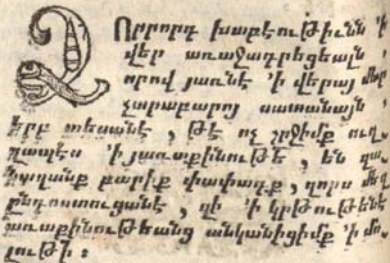 Չորրորդ խաբէութիւնն ՚ի
վեր առաջադրեցեալ
որով յառնէ ՚ի վերայ մեր
չարաբարոյ սատանայն
երբ տեսանէ, թէ ոչ շրջիմք ուղ
ղապէս ՚ի յառաքինութե՛, են դա
բարիք փափագք, զորս մեզ
ընդոստուցանէ, զի ՚ի կրթութենէ
առաքինութեանց անկանիցիմք ՚ի մո
լութի։